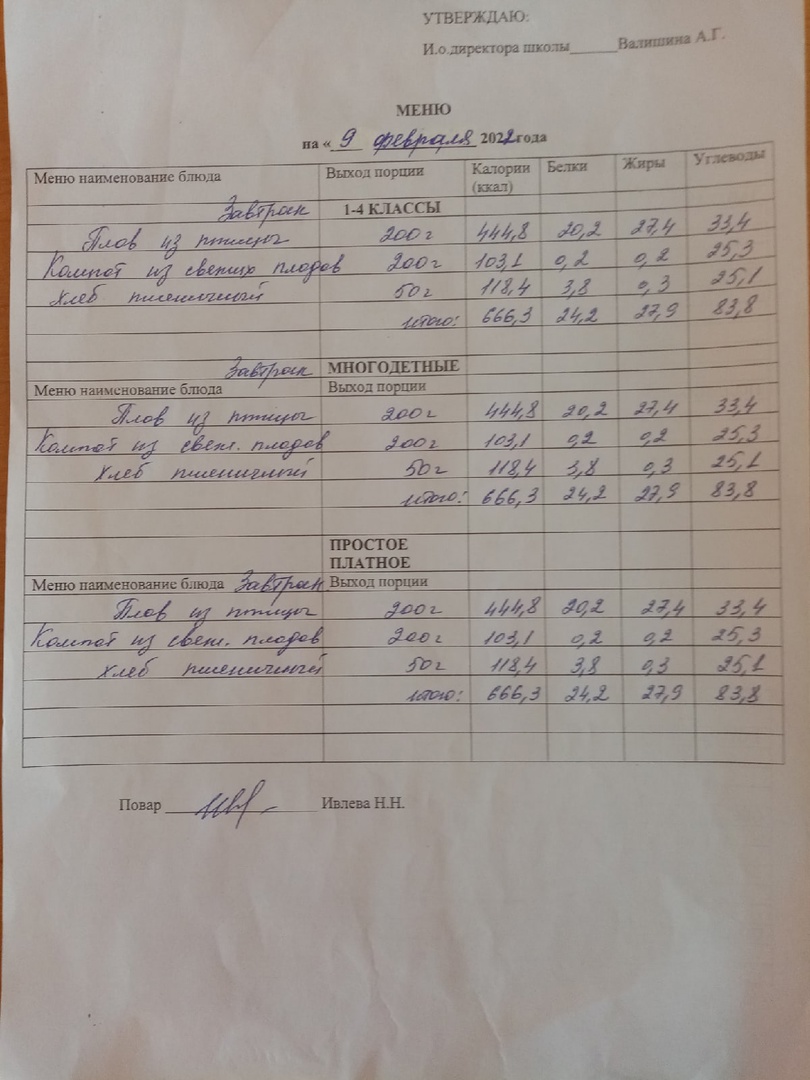 УТВЕРЖДАЮ:
И.о.директора школы______Валишина А.Г.
МЕНЮ
на « 9 февраля 2022года
Меню наименование блюда Выход порции Калории (ккал) Белки Жиры Углеводы
Завтрак 1-4 КЛАССЫ
Плов из птицы 200г 444,8 20,2 27,4 33,4
Компот из свежих плодов 200г 103,1 0,2 0,2 25,3
хлеб пшеничный 50г 118,4 3,8 0,3 25,1
итого: 666,3 24,2 27,9 83,8
Завтрак МНОГОДЕТНЫЕ
Меню наименование блюда Выход порции
Плов из птицы 200г 444,8 20,2 27,4 33,4
Компот из свеж. плодов 200г 103,1 0,2 0,2 25,3
хлеб пшеничный 50г 118,4 3,8 0,3 25,1
итого: 666,3 24,2 27,9 83,8
ПРОСТОЕ
ПЛАТНОЕ
Меню наименование блюда Завтрак Выход порции
Плов из птицы 200г 444,8 20,2 27,4 33,4
Компот из свеж. плодов 200г 103,1 0,2 0,2 25,3
хлеб пшеничный 50г 118,4 3,8 0,3 25,1
итого: 666,3 24,2 27,9 83,8
Повар Ивлева Н.Н.